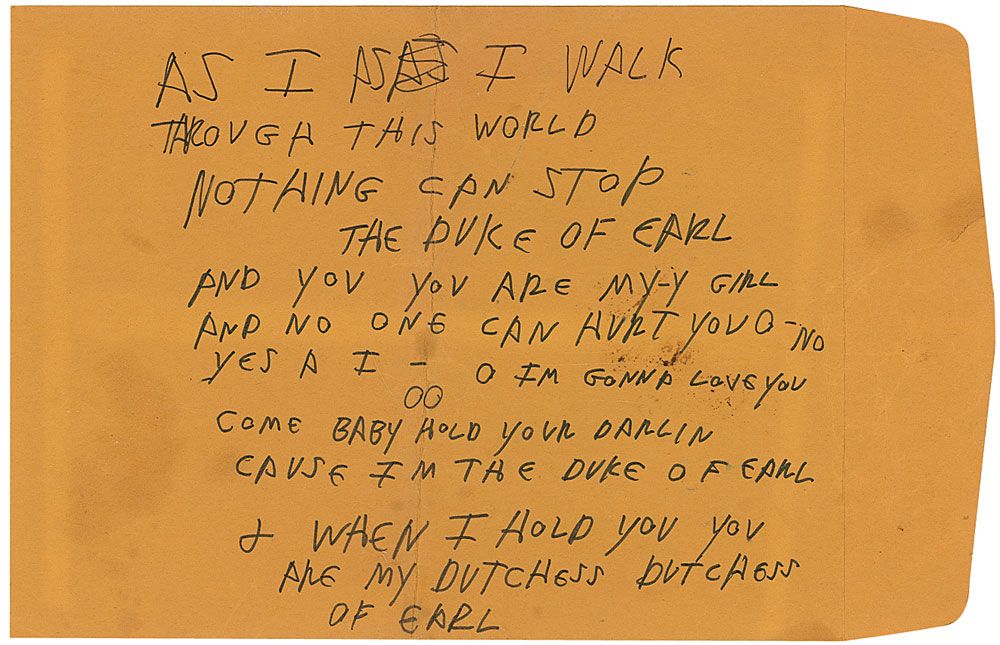 AS I AS I WALK
THROUGH THIS WORLD
NOTHING CAN STOP
THE DUKE OF EARL
AND YOU YOU ARE MY-Y GIRL
AND NO ONE CAN HURT YOU O-NO
YES A I - O IM GONNA LOVE YOU
OO
COME BABY HOLD YOUR DARLIN
CAUSE IM THE DUKE OF EARL
& WHEN I HOLD YOU YOU
ARE MY DUTCHESS DUTCHESS
OF EARL